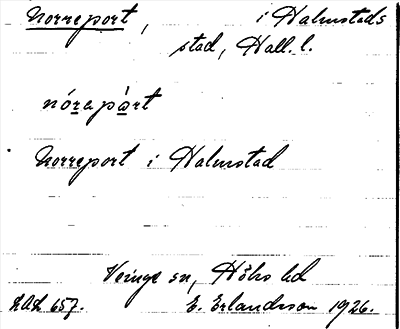 Norreport, i Halmstads
stad, Hall. l.
nórapårt
Norreport i Halmstad
Veinge sn, Höks hd
E. Erlandsson 1926.